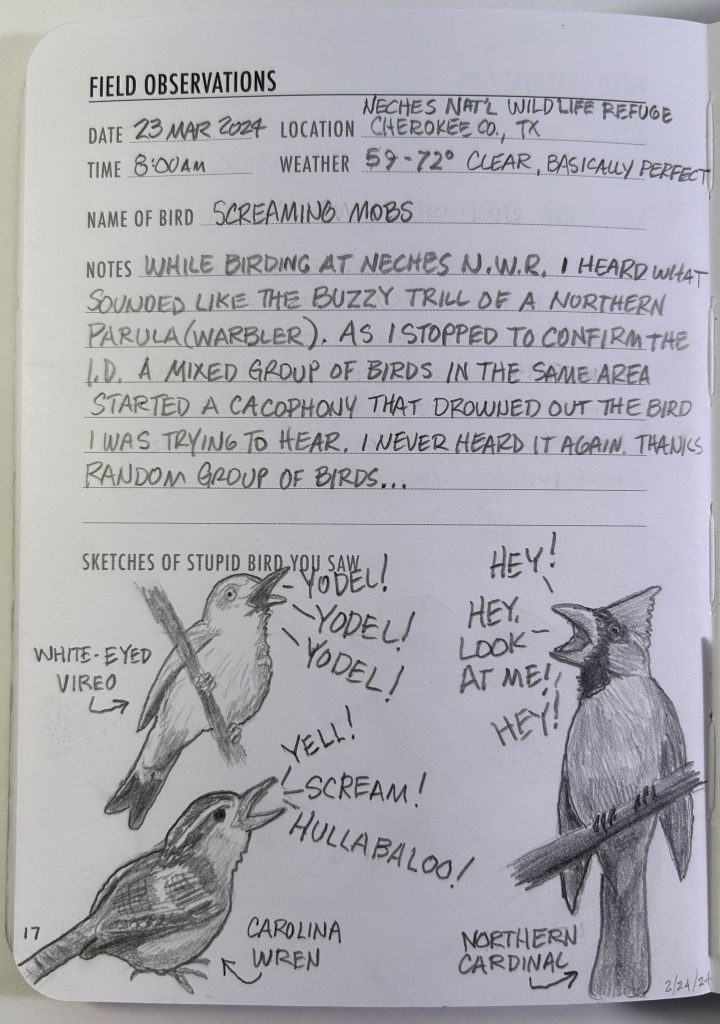 FIELD OBSERVATIONS
NECHES NAT'L WILDLIFE REFUGE
DATE 23 MAR 2024 LOCATION CHEROKEE CO., TX
TIME 8:00AM WEATHER 59-72° CLEAR, BASICALLY PERFECT
NAME OF BIRD SCREAMING MOBS
NOTES WHILE BIRDING AT NECHES N.W.R. I HEARD WHAT
SOUNDED LIKE THE BUZZY TRILL OF A NORTHERN
PARULA (WARBLER). AS I STOPPED TO CONFIRM THE
I.D. A MIXED GROUP OF BIRDS IN THE SAME AREA
STARTED A CACOPHONY THAT DROWNED OUT THE BIRD
I WAS TRYING TO HEAR. I NEVER HEARD IT AGAIN. THANKS
RANDOM GROUP OF BIRDS...
SKETCHES OF STUPID BIRD YOU SAW
YODEL!
YODEL!
YODEL!
WHITE-EYED
VIREO
HEY!
HEY,
LOOK
AT ME!
HEY!
YELL!
SCREAM!
HULLABALOO!
CAROLINA
WREN
NORTHERN
CARDINAL
17
2/24/24